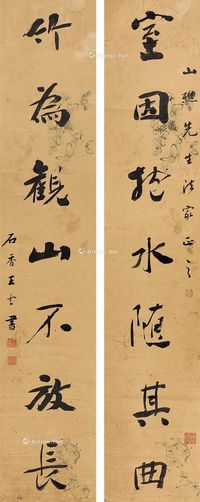 山聽先生法家正之
室因抱水隨其曲
竹為觀山不放長
石香王雲書